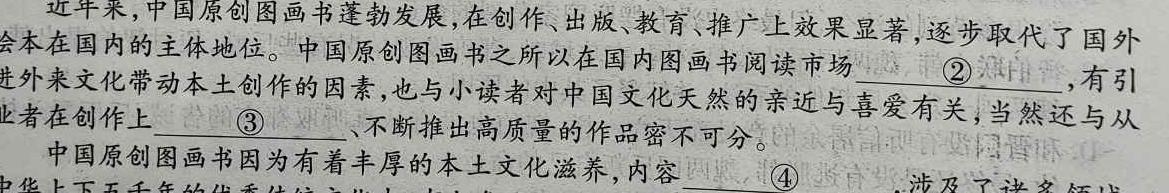 近年来,中国原创图画书蓬勃发展,在创作、出版、教育、推广上效果显著,逐步取代了国外
绘本在国内的主体地位。中国原创图画书之所以在国内图画书阅读市场②,有引
进外来文化带动本土创作的因素,也与小读者对中国文化天然的亲近与喜爱有关,当然还与从
业者在创作上③、不断推出高质量的作品密不可分。
中国原创图画书因为有着丰厚的本土文化滋养,内容④,涉及了诸多领域
中华上下五千年的优秀传统文化